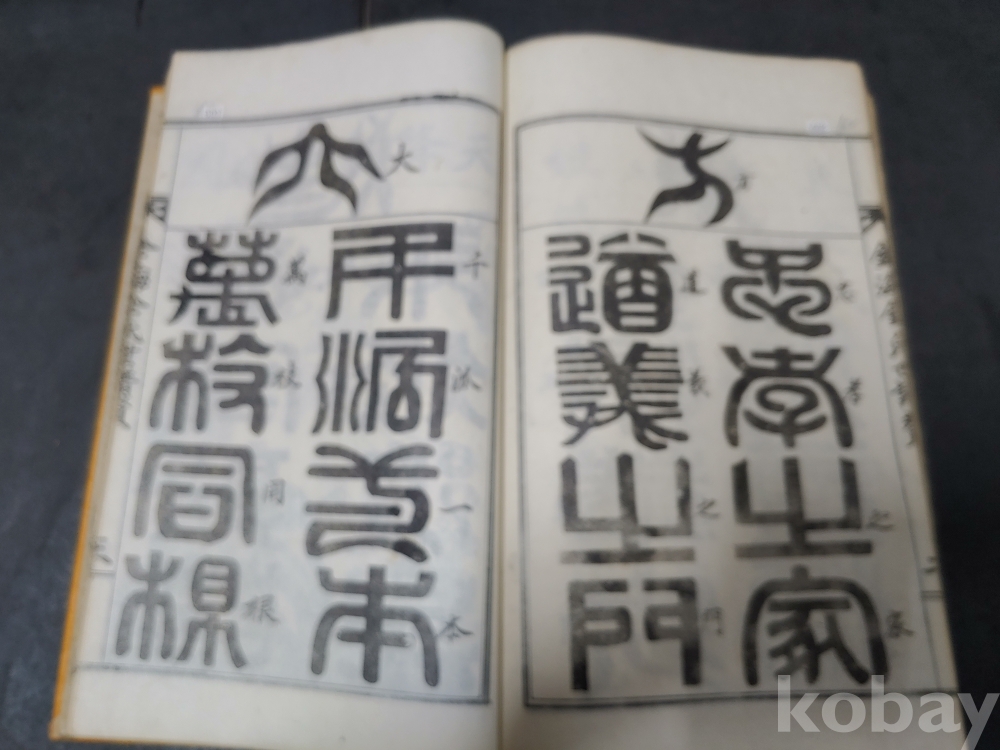 方
忠孝之家
道義之門
大
千派一本
萬枝同根
kobay